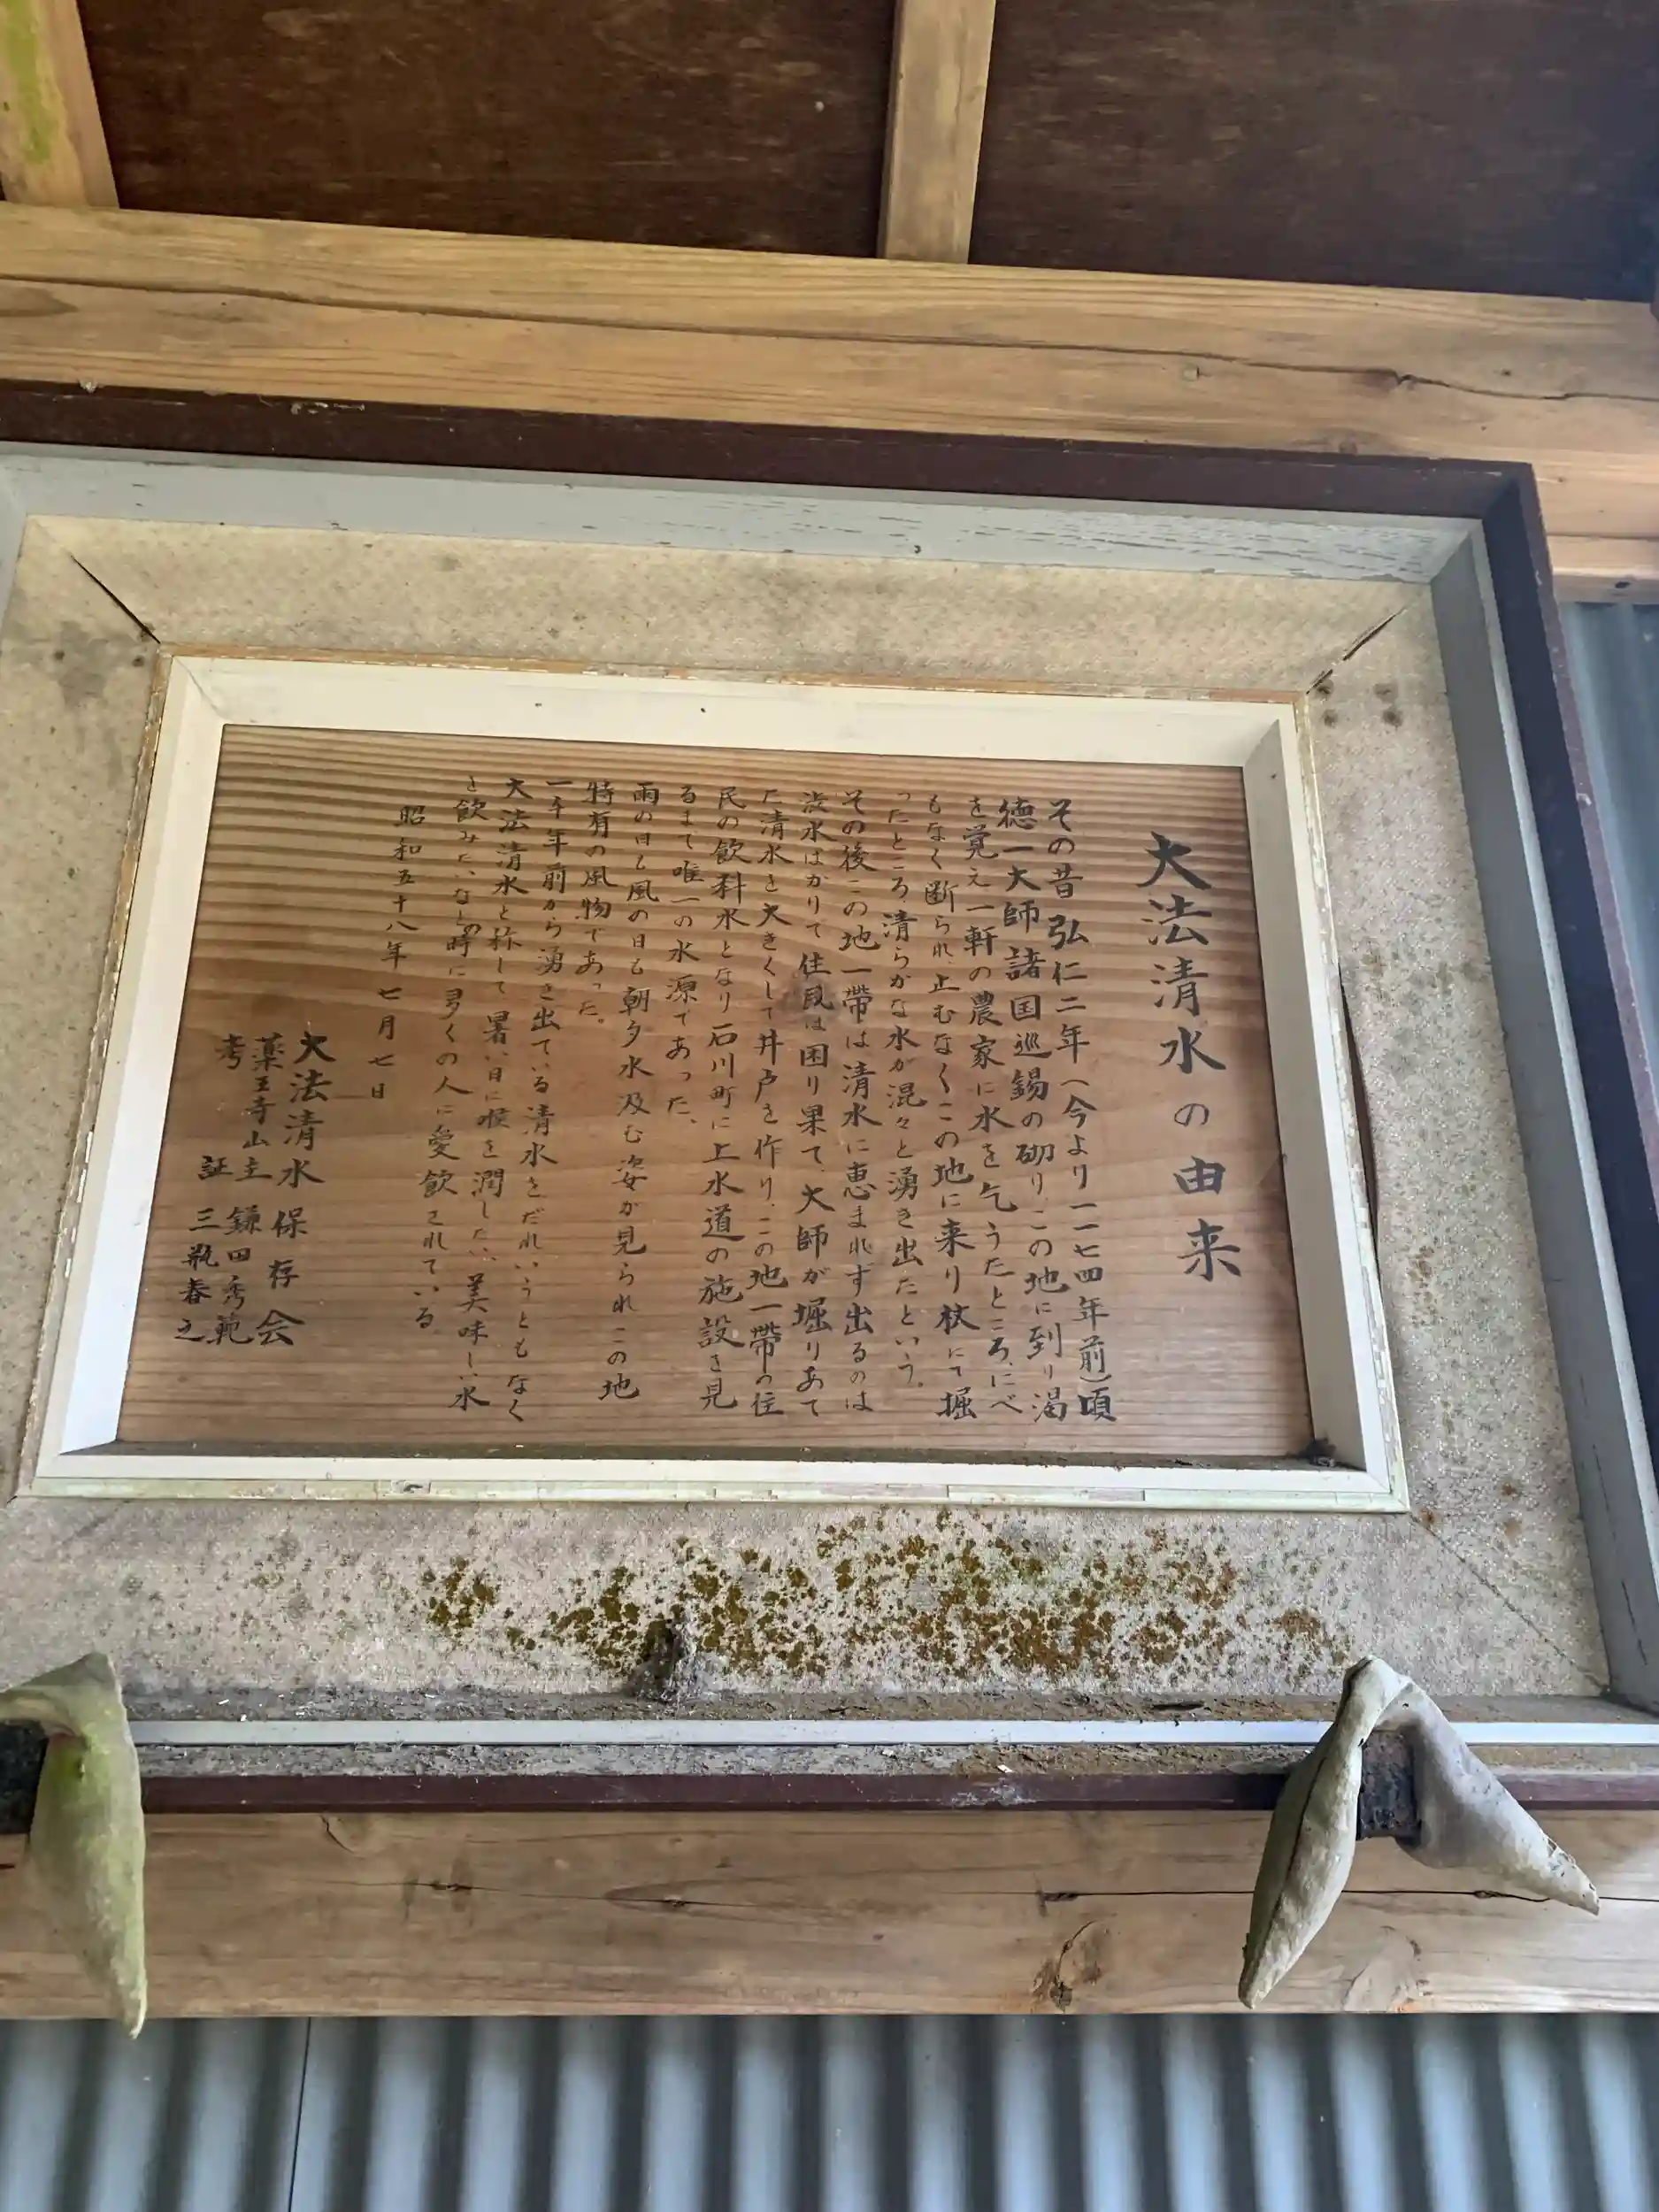 大法清水の由来
その昔弘仁二年(今より一一七四年前)頃
徳一大師諸国巡錫の砌り、この地に到り渇
を覚え一軒の農家に水を乞うたところ、にべ
もなく断られ、止むなくこの地に来り杖にて掘
ったところ清らかな水が混々と湧き出たという。
その後この地一帯は清水に恵まれず出るのは
渋水ばかりで住民は困り果て、大師が堀りあて
た清水を大きくして井戸を作り、この地一帯の住
民の飲料水となり石川町に上水道の施設を見
るまで唯一の水源であった、
雨の日も風の日も朝夕水汲む姿が見られこの地
特有の風物であった。
一千年前から湧き出ている清水をだれいうともなく
大法清水と称して暑い日に喉を潤したい、美味しい水
と飲みたいなーの時に多くの人に愛飲されている
昭和五十八年七月七日
大法清水保存会
薬王寺山主 鎌田秀範
考証 三瓶春之